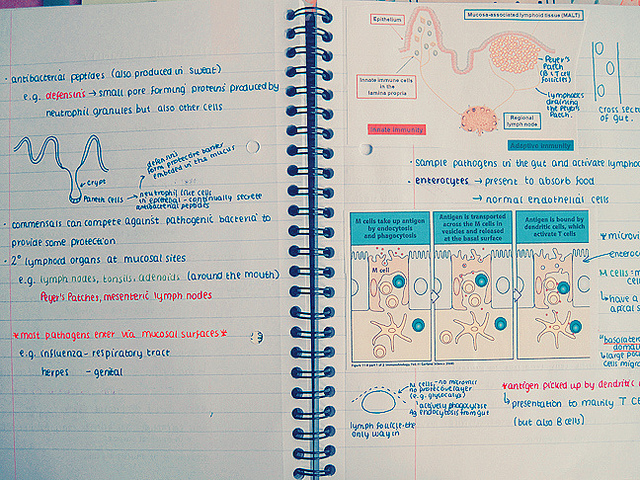 • antibacterial peptides (also produced in sweat)
e.g. defensins → small pore forming proteins produced by
neutrophil granules but also other cells
defensins
form protective barrier
embedded in the mucus
Crypt
Paneth cells → neutrophil like cells
in epithelial - continually secrete
antibacterial peptides
• commensals can compete against pathogenic bacteria to
provide some protection
• 2° lymphoid organs at mucosal sites
e.g. lymph nodes, tonsils, adenoids (around the mouth)
Peyer's Patches, mesenteric lymph nodes
*most pathogens enter via mucosal surfaces*
e.g. influenza - respiratory tract
herpes - genital
Mucosa-associated lymphoid tissue (MALT)
Epithelium
Innate immune cells
in the
lamina propria
Peyer's
Patch
(B & T cell
follicles)
lymphatics
draining the
Peyer's
Patch.
Regional
lymph node
cross sect
of gut.
Innate immunity
Adaptive immunity
• sample pathogens in the gut and activate lympho
• enterocytes → present to absorb food
→ normal endothelial cells
M cells take up antigen
by endocytosis
and phagocytosis
Antigen is transported
across the M cells in
vesicles and released
at the basal surface
Antigen is bound by
dendritic cells, which
activate T cells
M cell
* microvi
enteroc
M cells -
cel
↳ have a
apical s
"basolater
domai
↳ large poc
cells migr
M cells - no microvilli
no protective layer
(e.g. glycocalyx)
actively phagocytose
Ag endocytosis from gut
lymph follicle - the
only way in
*antigen picked up by dendritic
↳ presentation to mainly T ce
(but also B cells)